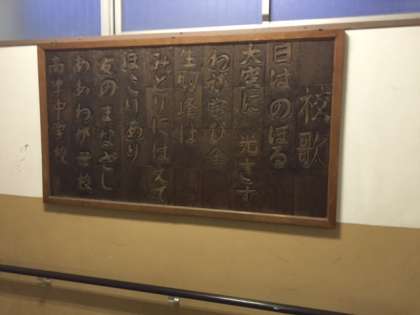 校歌
日はのぼる
大空に 光さす
わが学び舎
生駒峰は
みどりにはえて
ほこりあり
友のまなざし
ああわが母校
高井中学校